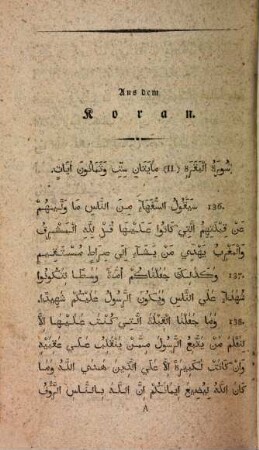 Aus dem
Koran.
سُورَةُ الْبَقَرَةِ (II) مايَتَانِ سِتّ وَثَمَانُونَ آيَاتٍ.
136. سَيَقُولُ السُّفَهَاء مِنَ النَّاسِ مَا وَلَّيهُمْ
عَنْ قِبْلَتِهِمْ الَّتِي كَانُوا عَلَيْهَا قُل لِلَّهِ المَشْرِقُ
وَالمَغْرِبُ يَهْدِي مَنْ يَشَاء إِلَي صِرَاطٍ مُسْتَقِيمٍ
137. وَكَذَلِكَ جَعَلْنَاكُمْ أُمَّةً وَسَطًا لِتَكُونُوا
شُهَدَاء عَلَي النَّاسِ وَيَكُونَ الرَّسُولُ عَلَيْكُمْ شَهِيدًا.
138. وَمَا جَعَلْنَا القِبْلَةَ الَّتِي كُنْتَ عَلَيْهَا إِلَّا
لِنَعْلَمَ مَنْ يَتَّبِعُ الرَّسُولَ مِمَّنْ يَنْقَلِبُ عَلَي عَقِبَيْهِ
وَإِنْ كَانَتْ لَكَبِيرَةً إِلَّا عَلَي الَّذِينَ هَدَي اللَّهُ وَمَا
كَانَ اللَّهُ لِيُضِيعَ إِيمَانَكُمْ إِنَّ اللَّهَ بِالنَّاسِ لَرَؤُفٌ
A